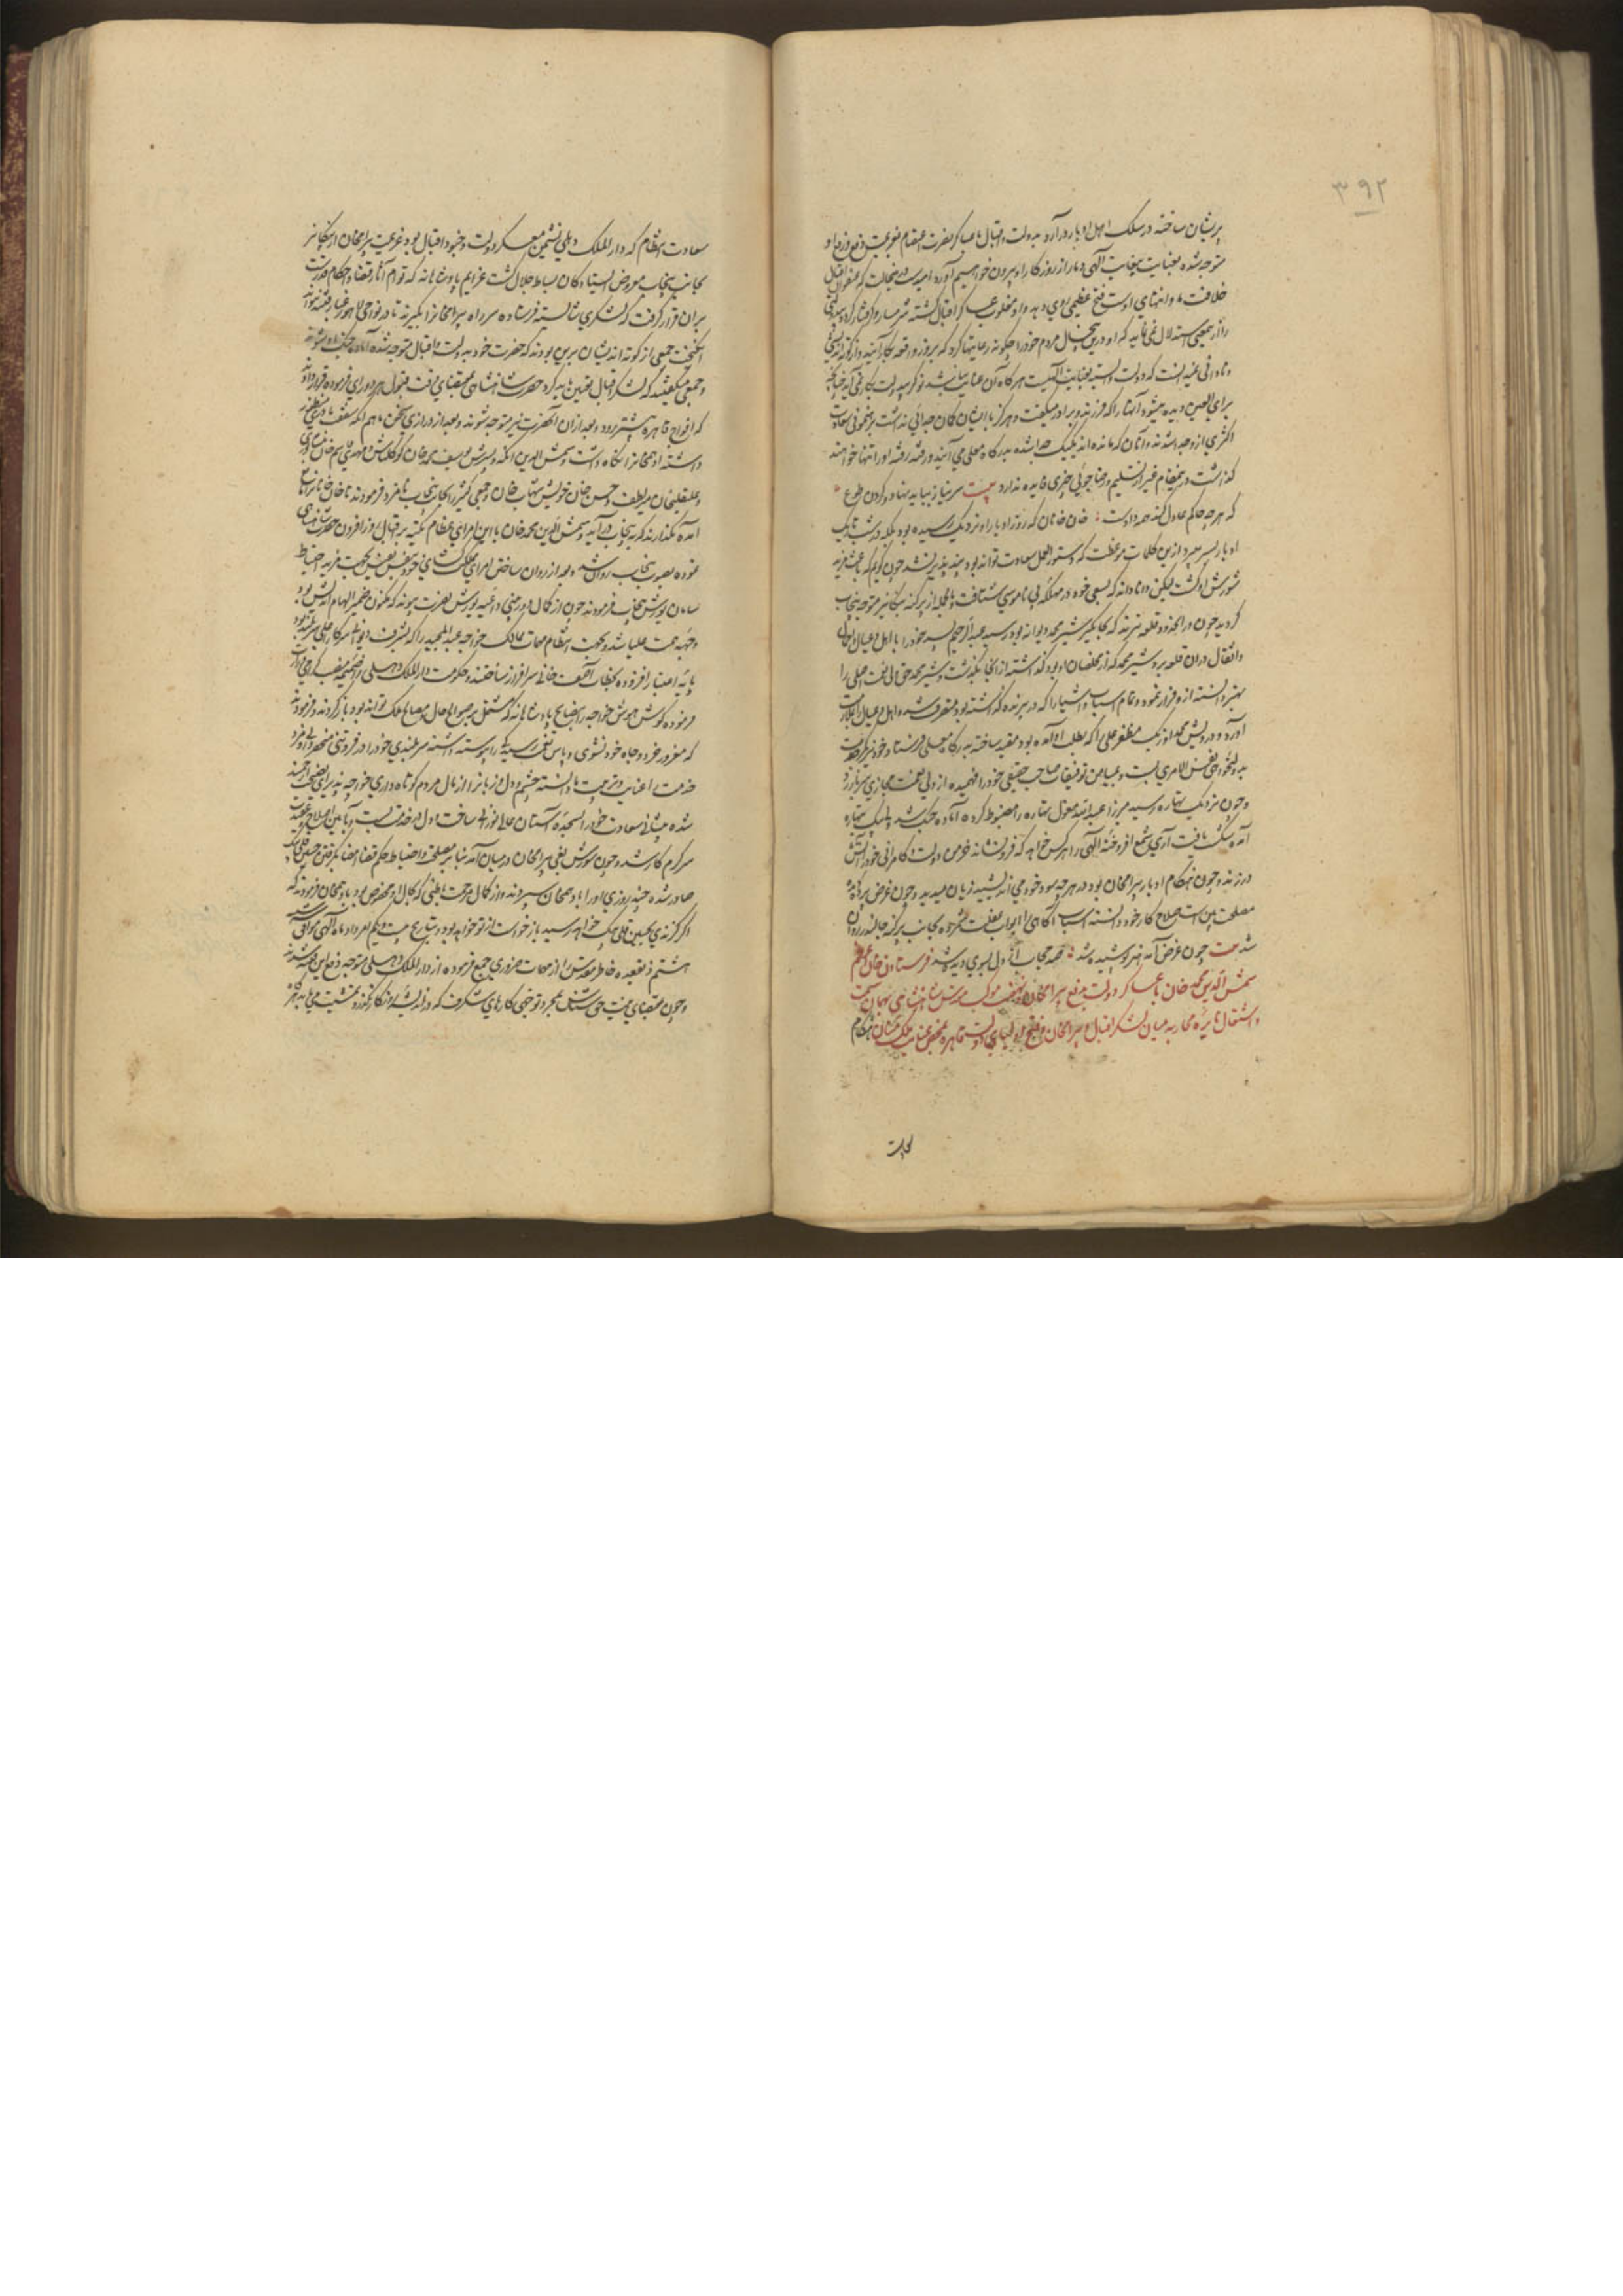 ۳۹۲
پریشان ساخته در سلک اهل ادبار درآرد بدولت و اقبال با عساکر نصرت اعتصام بعزیمت دفع و رفع او
متوجه شده بعنایت بیغایت الهی دمار از روزگار او بیرون خواهیم آورد امید که
خلافت ما و انتهای اوست فتح عظیمی روی دهد و او مغلوب عساکر اقبال گشته شرمسار و گرفتار گردد
را از جمعی استدلال نمی‌نماید که او درین پنج سال مردم خود را چگونه رعایتها کرد که بروز واقعه بکار آیند و از کوته اندیشی
و ناواقفی نمیدانست که دولت وابسته بعنایت الهیست هرگاه آن عنایت نباشد نوکر بیدولت بکار نمی آید چنانچه
برای العین دیده میشود آنها را که فرزند و برادر میگفت و هرگز با ایشان گمان جدائی نداشت برهنمونی سعادت
اکثری ازو جدا شدند و آنان که مانده اند یکیک جدا شده بدرگاه معلی می آیند و رفته رفته او را تنها خواهند
گذاشت درینمقام غیر از تسلیم و رضا جوئی چیزی فایده ندارد بیت سر نیاز بباید نهاد و گردن طوع
که هرچه حاکم عادل کند همه دادست خان خانان که روز ادبار او نزدیک رسیده بود بلکه در شب تاریک
ادبار بسر میبرد ازین کلمات موعظت که دستور العمل سعادت تواند بود پند پذیر نشد چون گویم که باعث مزید
شورش او گشت لیکن و نادانه که بسعی خود در مهلکه بی ناموسی شتافت و بالجمله از پرگنه بیکانیر متوجه پنجاب
گردید چون در حدود قلعه تبرهنده که بجاگیر شیر محمد دیوانه بود رسید عبدالرحیم پسر خود را با اهل و عیال و احمال
و اثقال دران قلعه برد شیر محمد که از مخلصان او بود گذاشته از آنجا بگذشت و شیر محمد حق ولی نعمت اصلی را
بهتر دانسته ازو فرار نمود و تمام اسباب و اشیا را که در تبرهنده گذاشته بود متصرف شد و اهل و عیال را اهانت
آورد و درویش محمد اوزبک مظفر علی را که بطلب او آمده بود مقید ساخته بدرگاه معلی فرستاد و خود نیز
بدولتخواهی نفس الامری بست و بمیامن توفیقات صاحب حقیقی خود را فهمیده از ولی نعمت مجازی سر باز زد
و چون نزدیک بتهاره رسید میرزا عبدالله مغول بتهاره را مضبوط کرده آماده جنگ شد ولی بیگ بتهاره
آمد شکست یافت آری شمع افروخته الهی را هرکس خواهد که فرونشاند خرمن دولت و کامرانی خود را آتش
در زند و چون هنگام ادبار بیرامخان بود در هر چه سود خود می اندیشید زیان میدید و چون غرض پرده
مصلحت بین است صلاح کار خود دانسته اسباب آگاهی را ابواب بغفلت شمرده بجانب پرگنه جالندر روان
شد بیت چون غرض آمد هنر پوشیده شد صد حجاب از دل بسوی دیده شد فرستادن خان اعظم
شمس الدین محمد خان با عساکر دولت بدفع بیرامخان و نهضت موکب مقدس شاهنشاهی بهمان سمت
و اشتعال نایره محاربه میان لشکر اقبال و بیرامخان و فتح اولیای دولت قاهره بمحض عنایت ملک منان هنگام
سعادت انتظام که دار الملک دهلی نشیمن معسکر دولت و خیمه اقبال بود عزیمت بیرامخان از بیکانیر
بجانب پنجاب معروض ایستادگان بساط جلال گشت عزایم پادشاهانه که توام آثار قضا و احکام قدرست
بران قرار گرفت که لشکری شایسته فرستاده سر راه بیرامخان را بگیرند تا در نواحی لاهور غبار فتنه نتواند
انگیخت جمعی از کوته اندیشان برین بودند که حضرت خود بدولت و اقبال متوجه شده آماده جنگ شوند
و جمعی میگفتند که لشکر اقبال تعیین باید کرد حضرت شاهنشاهی بمقتضای رافت قبول هر دو رای فرموده قرار دادند
که افواج قاهره پیشتر رود و بعد ازان آنحضرت نیز متوجه شوند و بعد از درازی سخن ماهم انکه سقف
داشته ادهمخان را نگاه داشت و شمس الدین اتکه و پسرش یوسف محمد خان کوکلتاش و مهدی قاسم خان
و علیقلیخان میر لطیف و حسن خان خویش شهاب خان و جمعی کثیر را بجانب پنجاب نامزد فرمودند تا خان خانان را
آمده نگذارند که به پنجاب درآید و شمس الدین محمد خان با این امرای عظام تکیه بر اقبال روز افزون حضرت شاهنشاهی
نموده بصوب پنجاب روان شد و بعد از روان ساختن امرای مملکت
سامان یورش پنجاب فرمودند چون از کمال دوربینی داعیه یورش نصرت پیوند که مکنون ضمیر الهام اندیش بود
وجهه همت علیا شد و بجهت انتظام مهمات ممالک خواجه عبدالمجید را که بشرف دیوانی سرکار اعلی سربلند بود
پایه اعتبار افزوده بخطاب آصف خانی سرافراز ساختند و حکومت دار الملک دهلی را ضمیمه
فرموده گوش هوش خواجه را بنصایح پادشاهانه که مشتمل بر مصالح حال و مصالح ملک تواند بود باز کردند و فرمودند
که مغرور خرد و جاه خود نشوی و پاس نفس رسیده را پیوسته داشته سربلندی خود را در فروتنی منحصر دانی و مزد
خدمت را عنایت و تربیت ما دانسته چشم و دل و زبان را از مال مردم کوتاه داری خواجه پذیرای نصیحت ارجمند
شده پیشانی سعادت خود را بسجده آستان عالی نورانی ساخت و دل در خدمت بست و بآئین اصلاح
سرگرم کار شد و چون شورش بغی بیرامخان در میان آمد بنا بر مصلحت و احتیاط حکم قضا امضا بگرفتن حسین قلی بیگ
صادر شده چند روزی او را بادهمخان سپردند و از کمال مرحمت باطنی که بحال او مخصوص بود بادهمخان فرمودند که
اگر گزندی بحسین قلی بیگ خواهد رسید بازخواست از تو خواهد بود و بتاریخ بیست و یکم امرداد ماه الهی موافق
هشتم ذیقعده خاطر مقدس را از مهمات ضروری جمع فرموده از دار الملک دهلی متوجه دفع این فتنه شدند
و چون بمقتضای نیت حق شناس بمجرد توجهی کارهای شگرف که در اندیشه روزگار نگذرد بمشیت می یابد